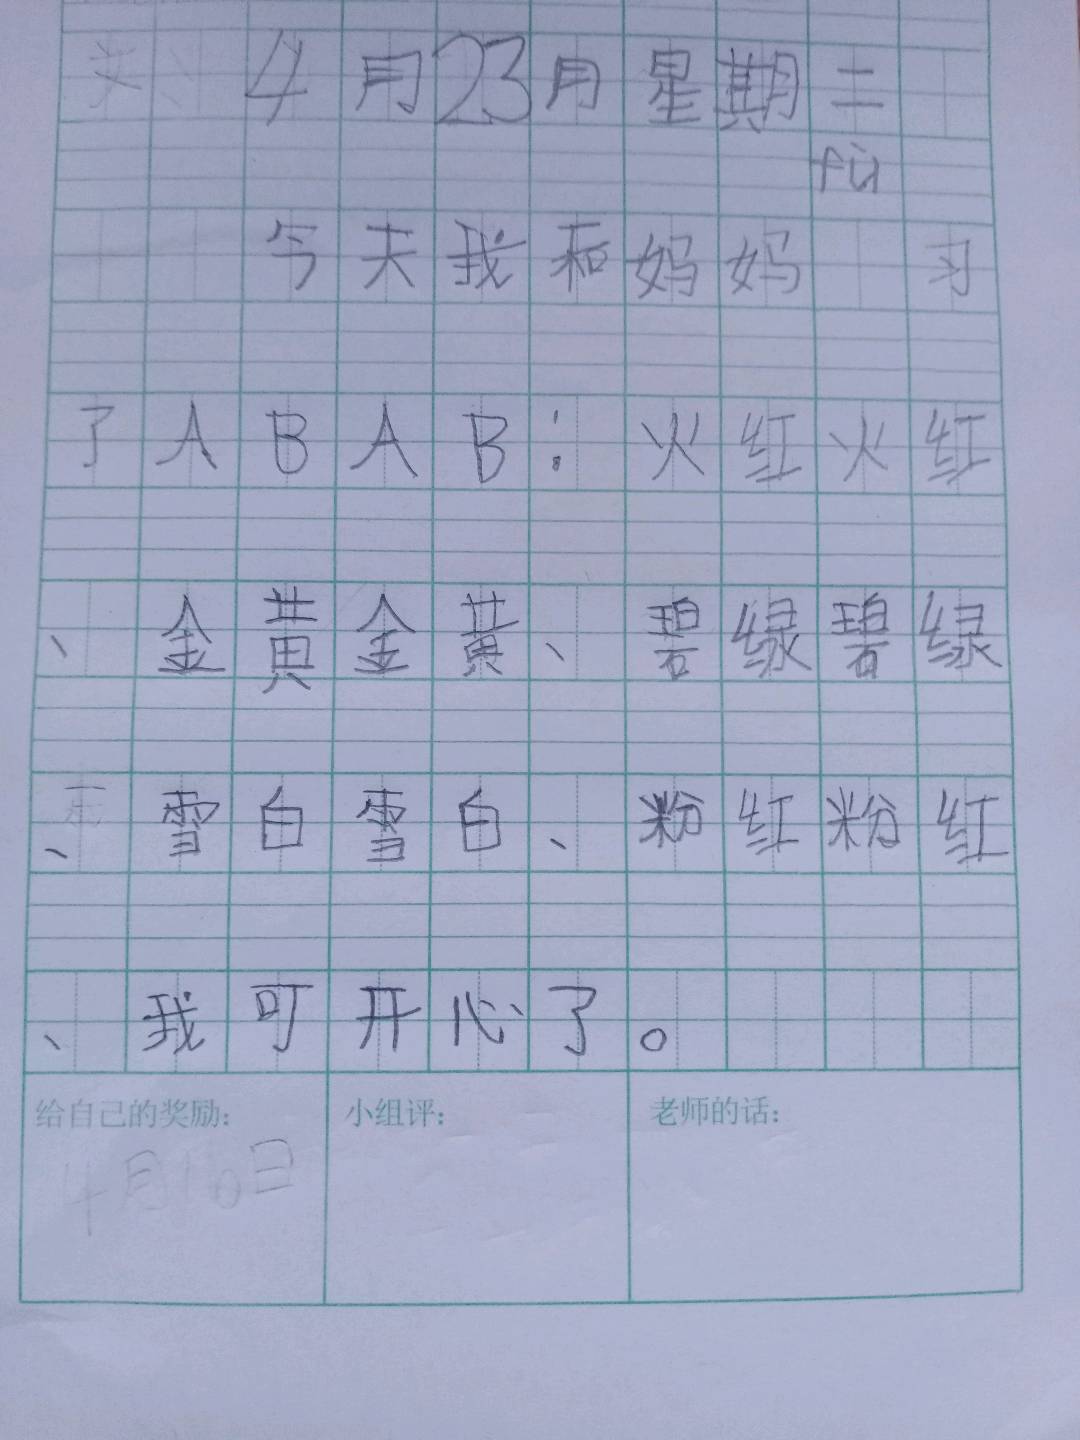 4月23月星期二
fù
今天我和妈妈 习
了ABAB：火红火红
、金黄金黄、碧绿碧绿
、雪白雪白、粉红粉红
、我可开心了。
给自己的奖励： 小组评： 老师的话：
4月16日